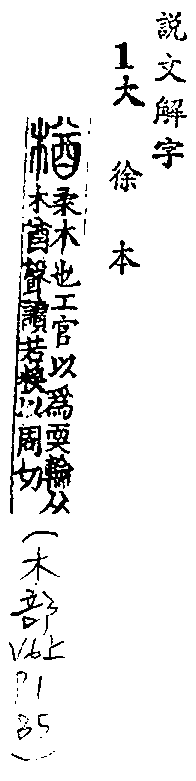 説文解字
1大徐本
楢柔木也工官以爲耎輪从
木酋聲讀若糗以周切
(木部
V6上
P1
85)